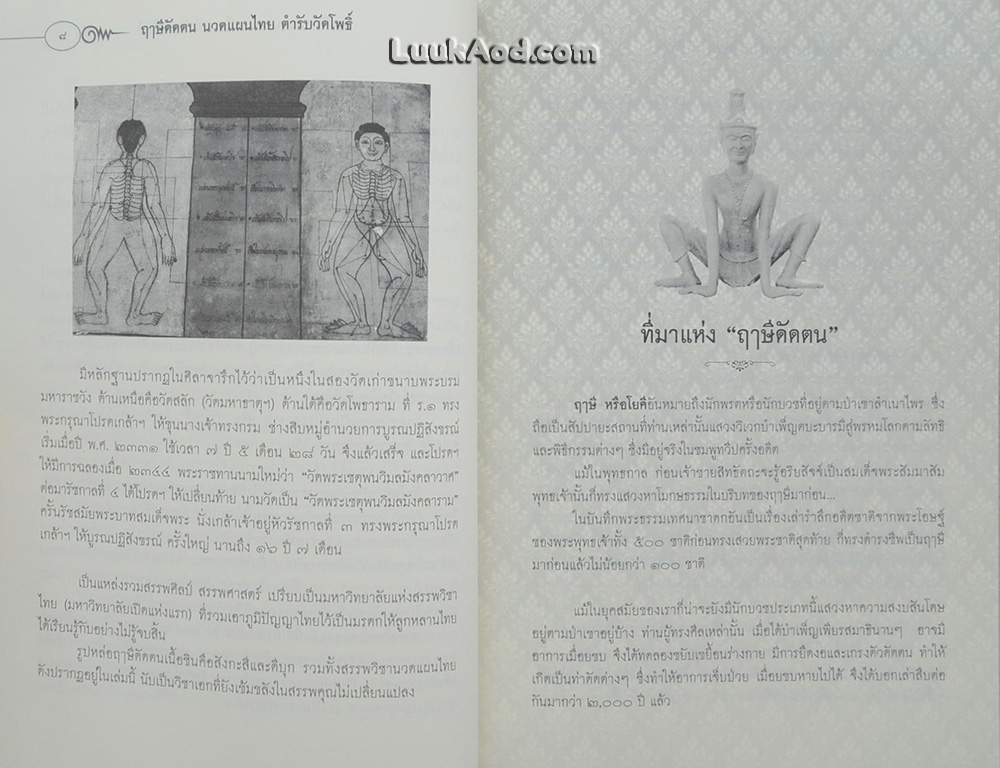 ๘
ฤๅษีดัดตน นวดแผนไทย ตำรับวัดโพธิ์
LuukAod.com
มีหลักฐานปรากฏในศิลาจารึกไว้ว่าเป็นหนึ่งในสองวัดเก่าขนาบพระบรม
มหาราชวัง ด้านเหนือคือวัดสลัก (วัดมหาธาตุฯ) ด้านใต้คือวัดโพธาราม ที่ ร.๑ ทรง
พระกรุณาโปรดเกล้าฯ ให้ขุนนางเจ้าทรงกรม ช่างสิบหมู่อำนวยการบูรณปฏิสังขรณ์
เริ่มเมื่อปี พ.ศ. ๒๓๓๑ ใช้เวลา ๗ ปี ๕ เดือน ๒๘ วัน จึงแล้วเสร็จ และโปรดฯ
ให้มีการฉลองเมื่อ ๒๓๔๔ พระราชทานนามใหม่ว่า “วัดพระเชตุพนวิมลมังคลาวาศ”
ต่อมารัชกาลที่ ๔ ได้โปรดฯ ให้เปลี่ยนท้าย นามวัดเป็น “วัดพระเชตุพนวิมลมังคลาราม”
ครั้นรัชสมัยพระบาทสมเด็จพระ นั่งเกล้าเจ้าอยู่หัวรัชกาลที่ ๓ ทรงพระกรุณาโปรด
เกล้าฯ ให้บูรณปฏิสังขรณ์ ครั้งใหญ่ นานถึง ๑๖ ปี ๗ เดือน
เป็นแหล่งรวมสรรพศิลป์ สรรพศาสตร์ เปรียบเป็นมหาวิทยาลัยแห่งสรรพวิชา
ไทย (มหาวิทยาลัยเปิดแห่งแรก) ที่รวมเอาภูมิปัญญาไทยไว้เป็นมรดกให้ลูกหลานไทย
ได้เรียนรู้กันอย่างไม่รู้จบสิ้น
รูปหล่อฤๅษีดัดตนเนื้อชินคือสังกะสีและดีบุก รวมทั้งสรรพวิชานวดแผนไทย
ดังปรากฏอยู่ในเล่มนี้ นับเป็นวิชาเอกที่ยังเข้มขลังในสรรพคุณไม่เปลี่ยนแปลง
ที่มาแห่ง “ฤๅษีดัดตน”
ฤๅษี หรือโยคีอันหมายถึงนักพรตหรือนักบวชที่อยู่ตามป่าเขาลำเนาไพร ซึ่ง
ถือเป็นสัปปายะสถานที่ท่านเหล่านั้นแสวงวิเวกบำเพ็ญตบะบารมีสู่พรหมโลกตามลัทธิ
และพิธีกรรมต่างๆ ซึ่งมีอยู่จริงในชมพูทวีปครั้งอดีต
แม้ในพุทธกาล ก่อนเจ้าชายสิทธัตถะจะรู้อริยสัจจ์เป็นสมเด็จพระสัมมาสัม
พุทธเจ้านั้นก็ทรงแสวงหาโมกษธรรมในบริบทของฤๅษีมาก่อน...
ในบันทึกพระธรรมเทศนาชาดกอันเป็นเรื่องเล่ารำลึกอดีตชาติจากพระโอษฐ์
ของพระพุทธเจ้าทั้ง ๕๐๐ ชาติก่อนทรงเสวยพระชาติสุดท้าย ก็ทรงดำรงชีพเป็นฤๅษี
มาก่อนแล้วไม่น้อยกว่า ๑๐๐ ชาติ
แม้ในยุคสมัยของเราก็น่าจะยังมีนักบวชประเภทนี้แสวงหาความสงบสันโดษ
อยู่ตามป่าเขาอยู่บ้าง ท่านผู้ทรงศีลเหล่านั้น เมื่อได้บำเพ็ญเพียรสมาธินานๆ อาจมี
อาการเมื่อยขบ จึงได้ทดลองขยับเขยื้อนร่างกาย มีการยืดงอและเกร็งตัวดัดตน ทำให้
เกิดเป็นท่าดัดต่างๆ ซึ่งทำให้อาการเจ็บป่วย เมื่อยขบหายไปได้ จึงได้บอกเล่าสืบต่อ
กันมากว่า ๒,๐๐๐ ปี แล้ว